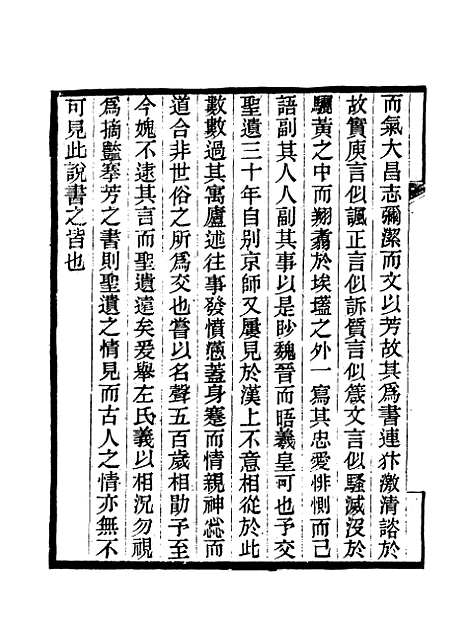 而氣大昌志彌潔而文以芳故其爲書連犿激清諮於
故實庾言似諷正言似訴質言似箴文言似騷滅沒於
驪黃之中而翔翥於埃壒之外一寫其忠愛悱惻而已
語副其人人副其事以是眇魏晉而晤羲皇可也予交
聖遺三十年自别京師又屢見於漢上不意相從於此
數數過其寓廬述往事發憤懣蓋身蹇而情親神惢而
道合非世俗之所爲交也嘗以名聲五百歲相勖予至
今媿不逮其言而聖遺遠矣爰舉左氏義以相況勿視
爲摘豔搴芳之書則聖遺之情見而古人之情亦無不
可見此說書之旨也